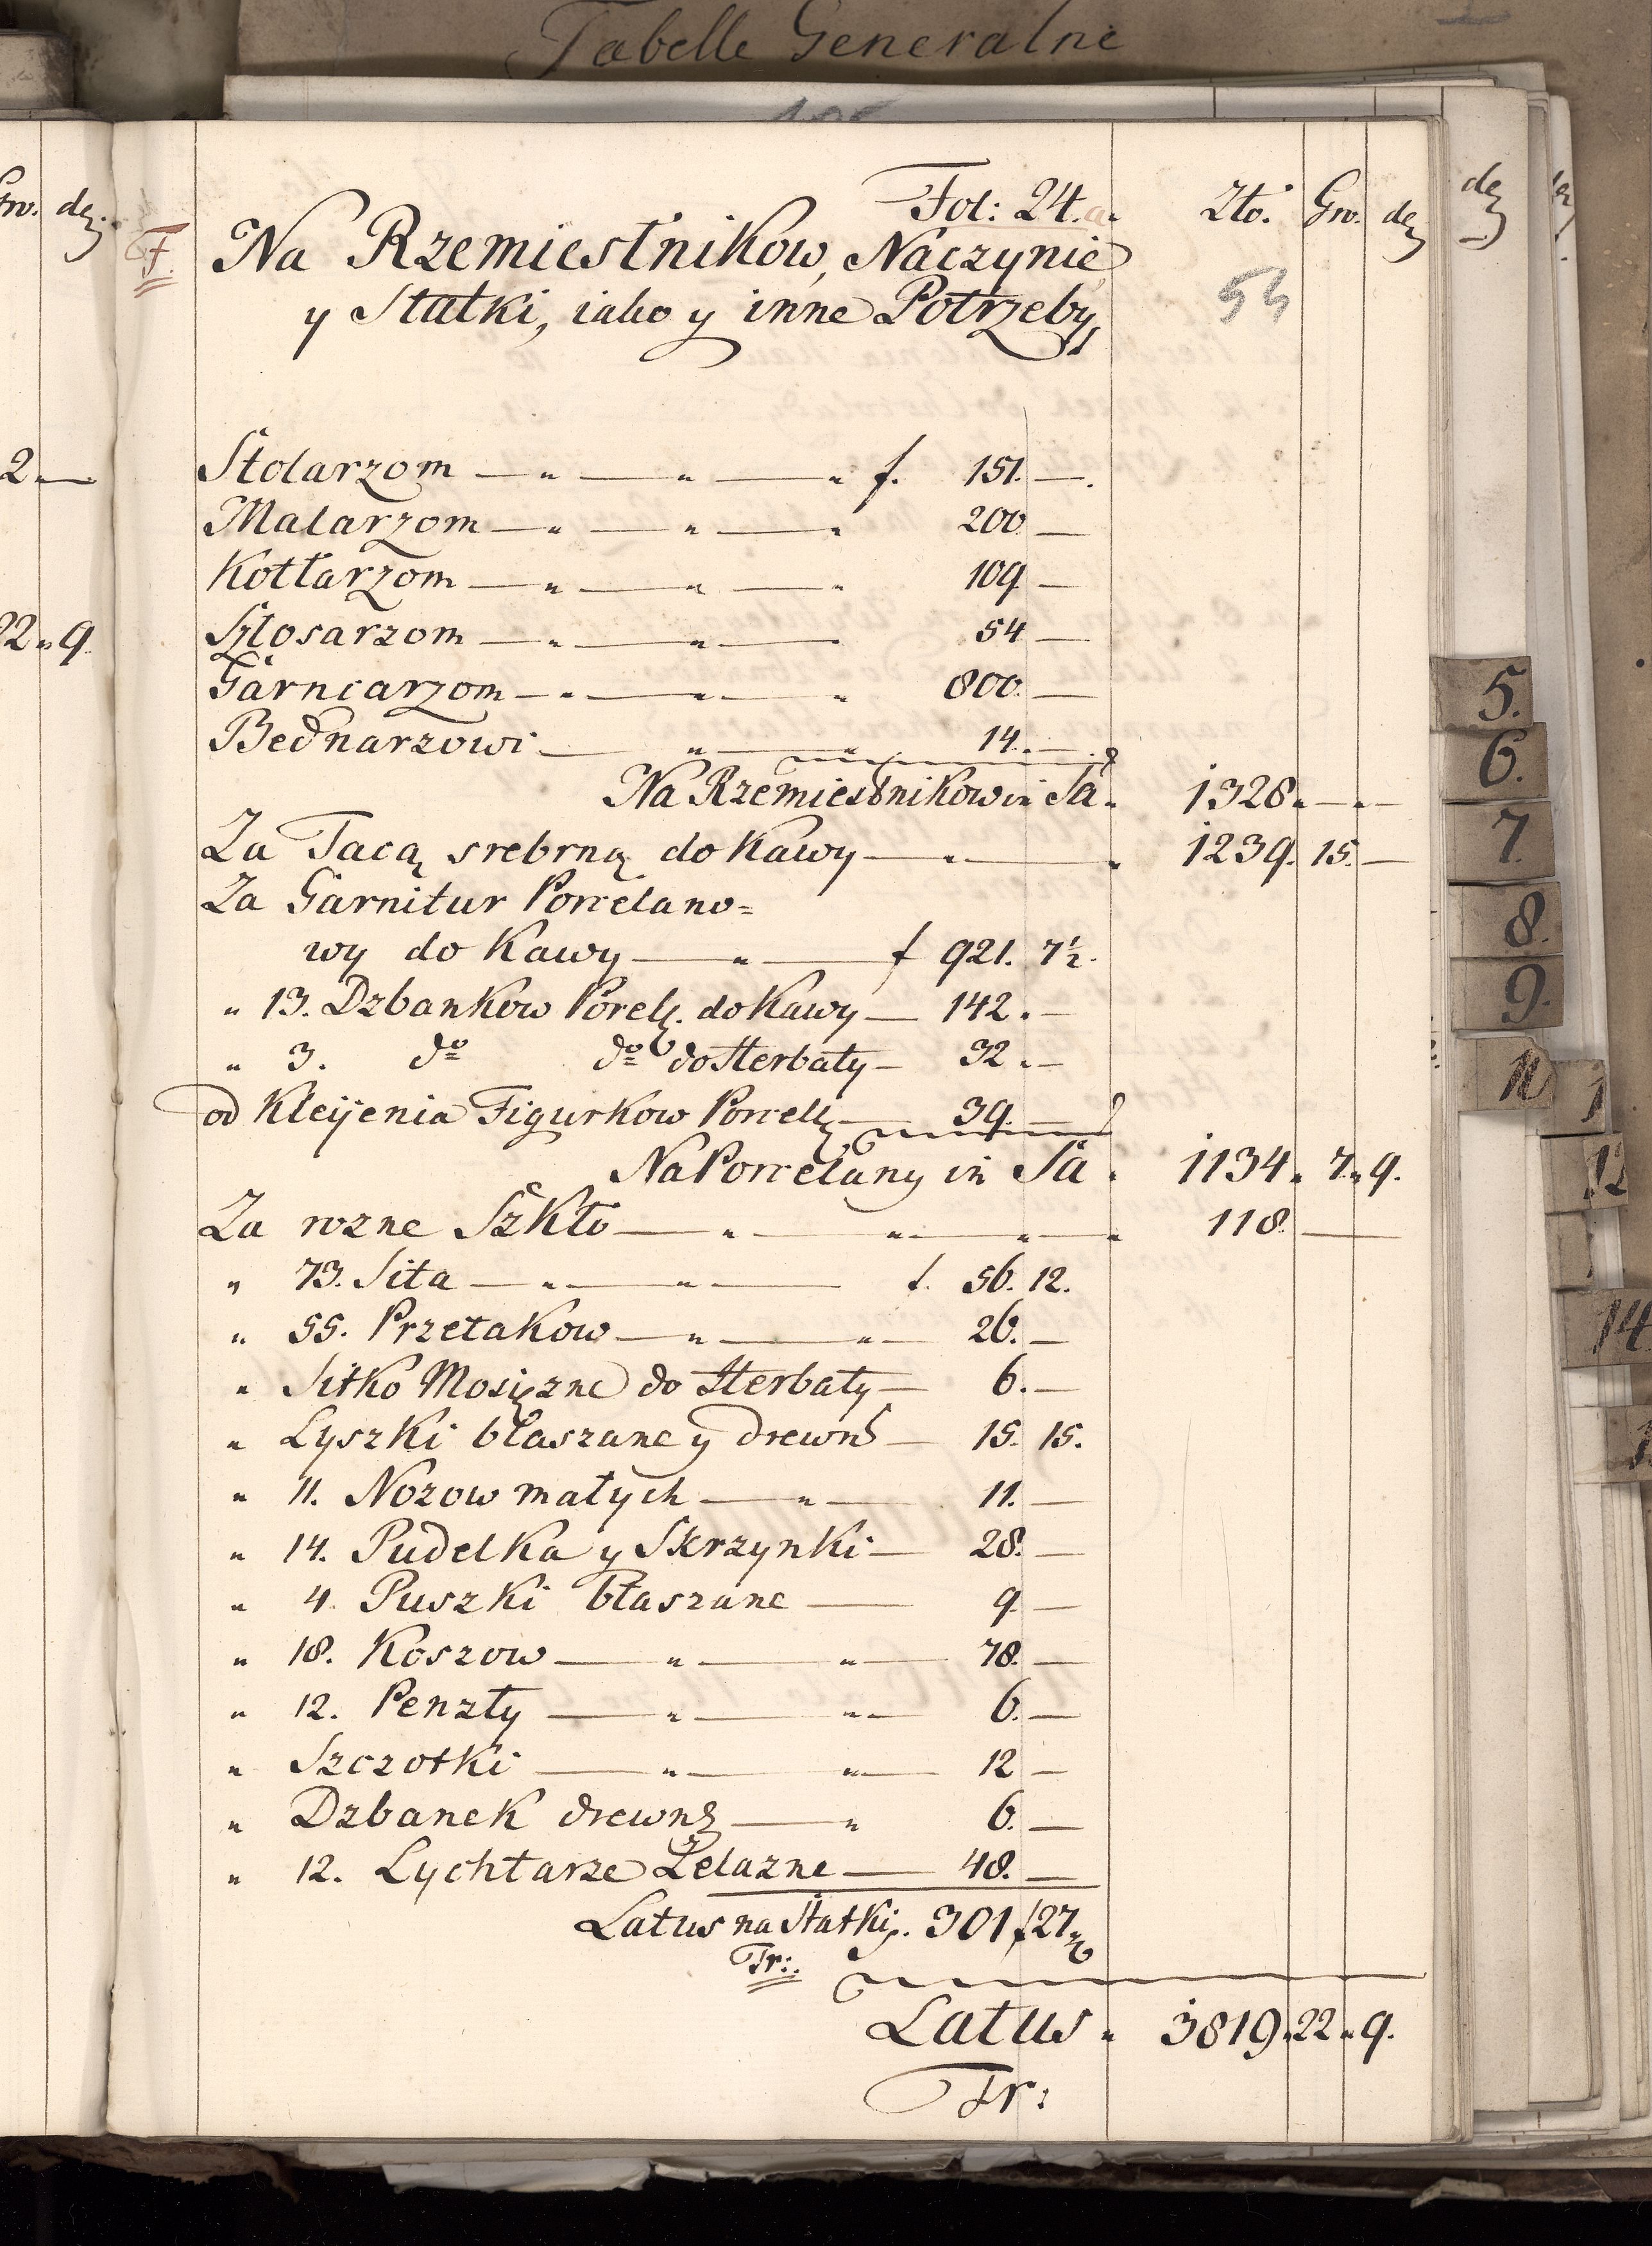 Tabelle Generalne
Gro. de.
F.
Fol: 24.a. Zto. Gro. de
Na Rzemiestnikow, Naczynie
y Statki, iako y inne Potrzeby,
55
2. —
22 " 9.
Stolarzom — " — " — " f. 151. —.
Malarzom — " — " — " 200 —
Kotlarzom — " — " — " 109 —
Szlosarzom — " — " — 54 —
Garncarzom — " — " — " 800. —
Bednarzowi — " — " — 14. —
Na Rzemiestnikow in Sa. 1328. — " —
Za Tacą srebrną do Kawy — " — " 1239. 15. —
Za Garnitur Porcelano=
wy do Kawy — " — f 921. 7½.
" 13. Dzbankow Porcel. do Kawy — 142. —
" 3. do do do Herbaty — 32. —
od Kleijenia Figurkow Porcell — 39. —
Na Porcelany in Sa. 1134 " 7 " 9.
Za rozne Szkło — " — " — " — " 118. —
" 73. Sita — " — " — f. 56. 12.
" 55. Przetakow — " — " — 26. —
" Sitko Mosiężne do Herbaty — 6. —
" Lyszki błaszane y drewn — 15. 15.
" 11. Nozow małych — " — 11. —
" 14. Pudelka y Skrzynki — 28. —
" 4. Puszki błaszane — 9 —
" 18. Koszow — " — " — 78. —
" 12. Penzly — " — " — 6. —
" Szczotki — " — " — 12 —
" Dzbanek drewn — " 6. —
" 12. Lychtarze Żelazne — 48. —
Latus na Statki. 301 f 27
Tr:.
Latus " 3819 " 22 " 9.
Tr:
5.
6.
7.
8.
9.
14